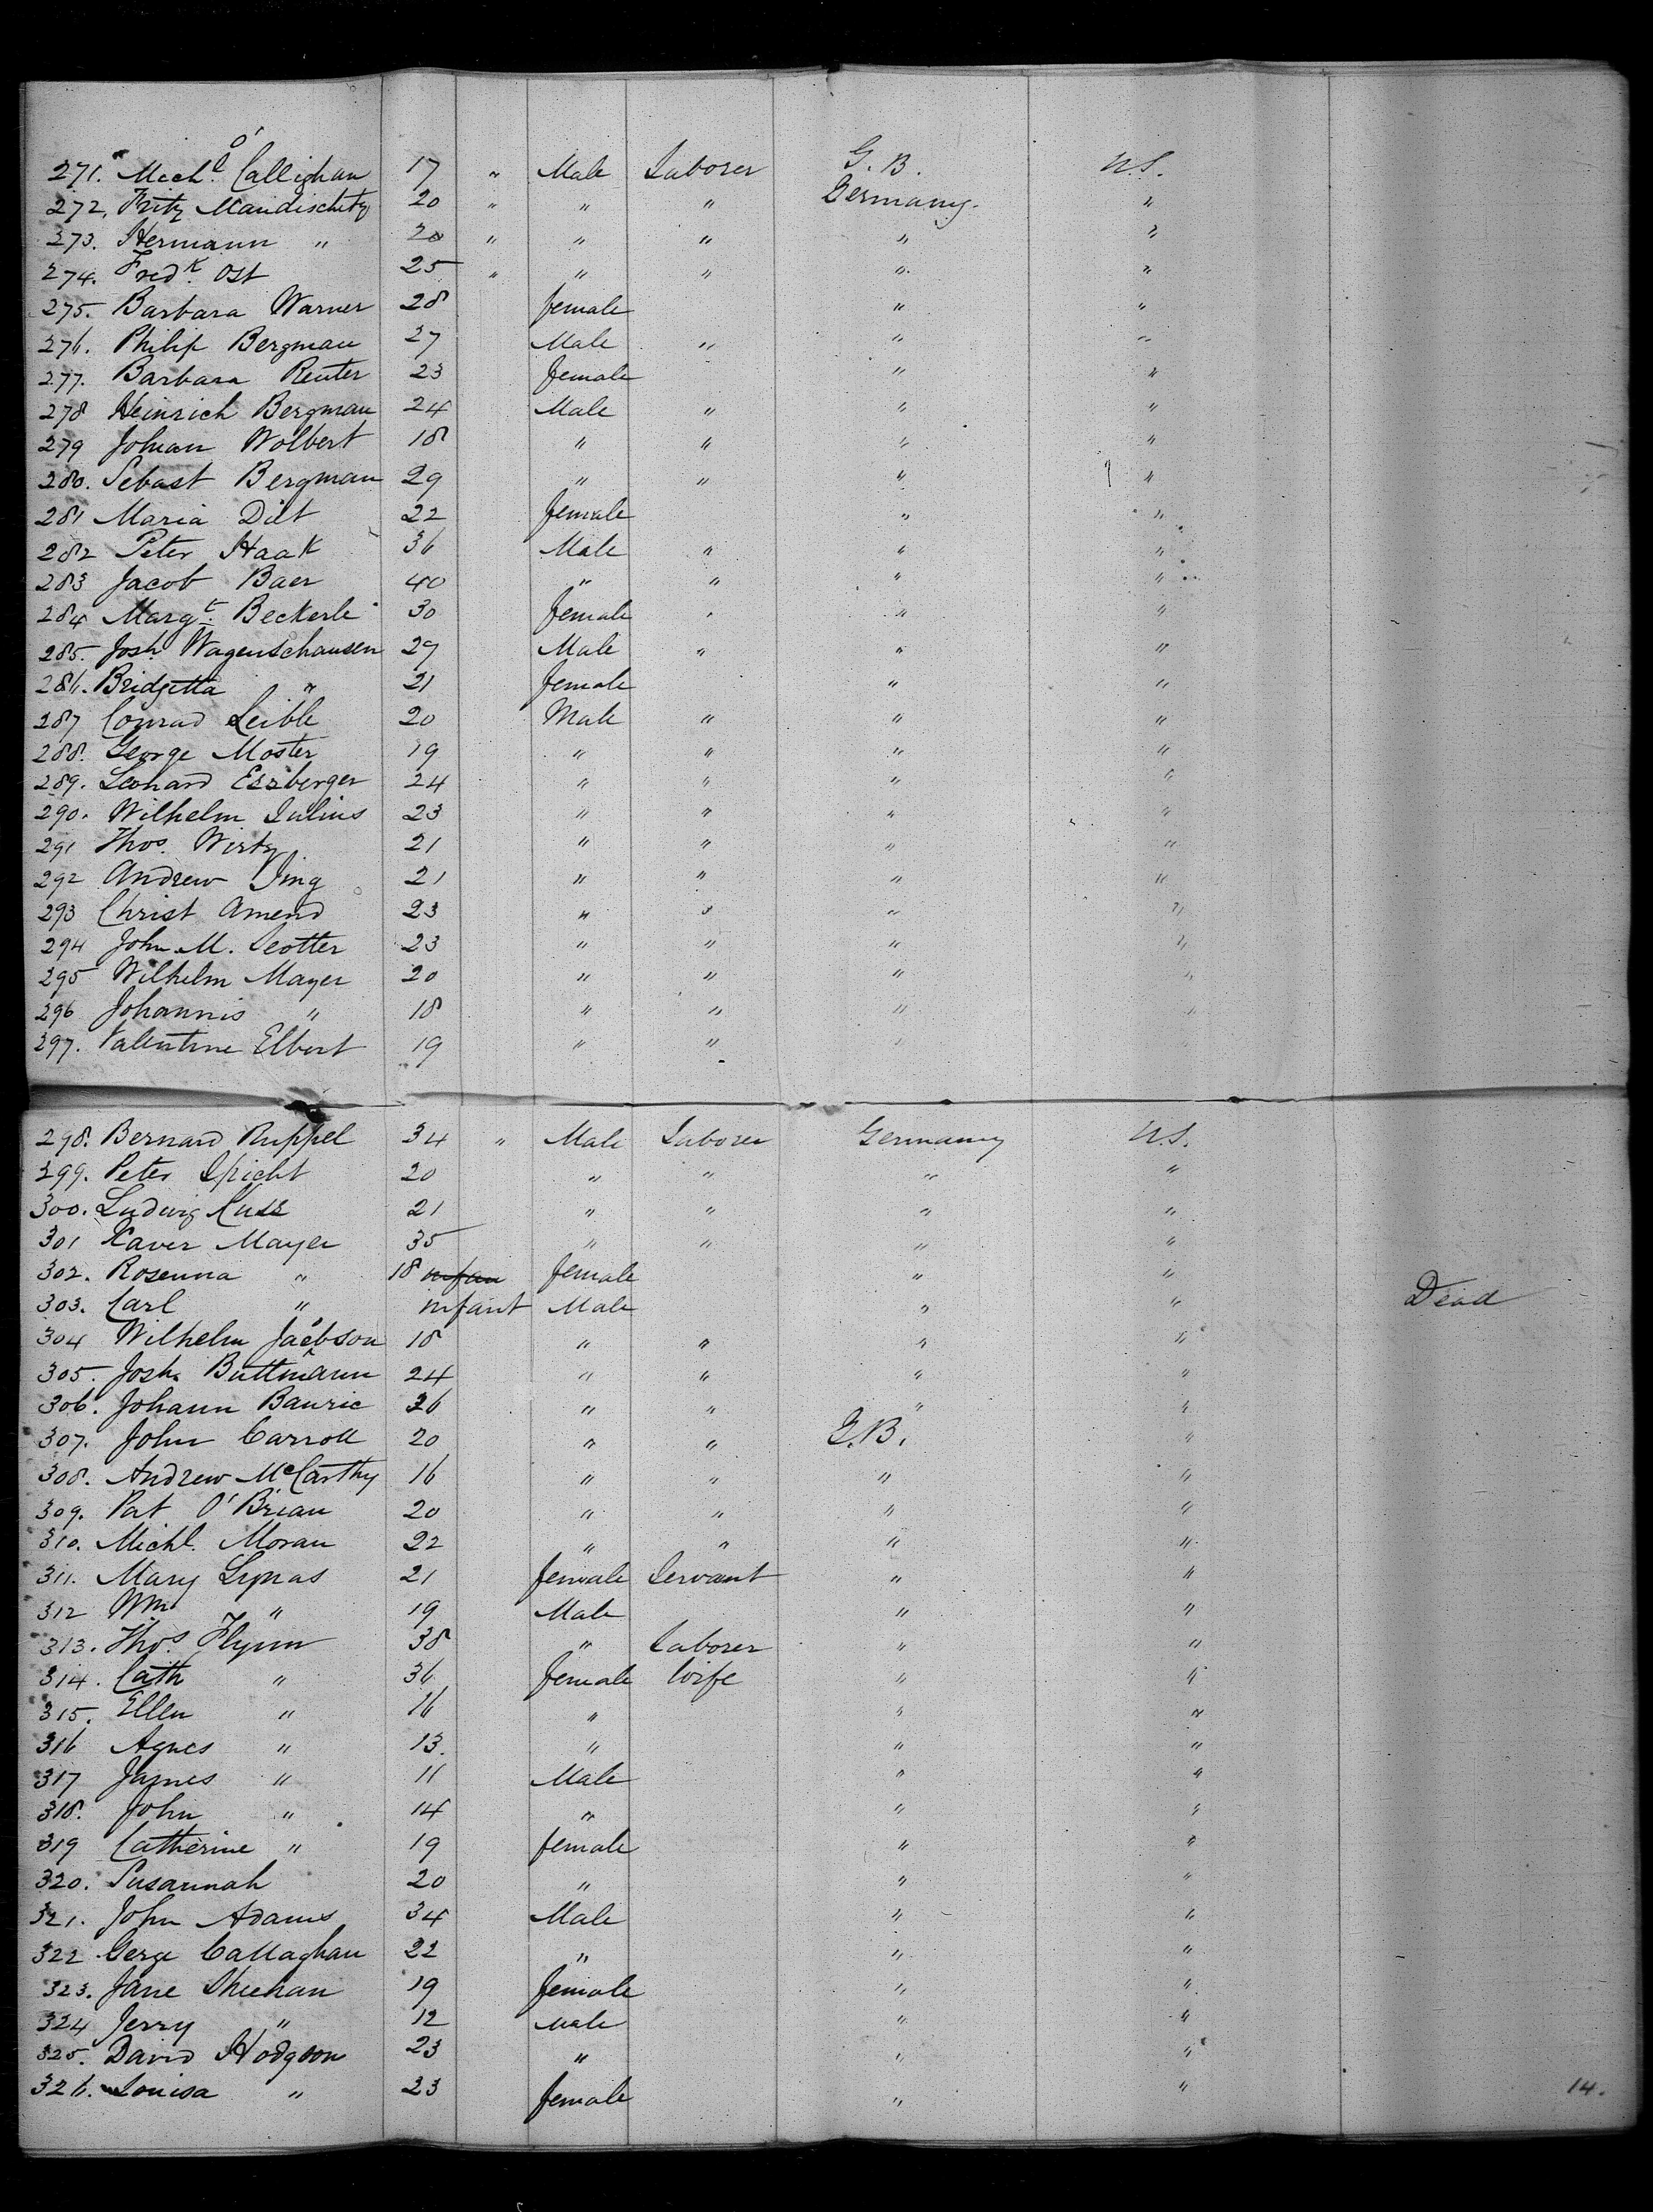 271. Mich.l O'Callighan 17 " Male Laborer G. B. U.S.
272. Fritz Mandischitz 20 " " " Germany. "
273. Hermann " 20 " " " " "
274. Fredk. Ost 25 " " " " "
275. Barbara Warner 28 female " "
276. Philip Bergman 27 Male " " "
277. Barbara Reuter 23 female " "
278 Heinrich Bergman 24 Male " " "
279 Johan Wolbert 18 " " " "
280. Sebast Bergman 29 " " " "
281 Maria Dilt 22 female " "
282 Peter Haak 36 Male " " "
283 Jacob Baer 40 " " " "
284 Margt. Beckerle 30 female " " "
285. Josh. Wagenschausen 29 Male " " "
286. Bridgetta " 21 female " "
287 Conrad Leible 20 Male " " "
288. George Moster 19 " " " "
289. Leonard Essberger 24 " " " "
290. Wilhelm Julius 23 " " " "
291 Thos. Wirtz 21 " " " "
292 Andrew Jing 21 " " " "
293 Christ Amend 23 " " " "
294 John M. Leotter 23 " " " "
295 Wilhelm Mayer 20 " " " "
296 Johannis " 18 " " " "
297. Valentine Elbert 19 " " " "
298. Bernard Ruppel 34 " Male Laborer Germany U.S.
299. Peter Spicht 20 " " " "
300. Ludwig Kuss 21 " " " "
301 Xaver Mayer 35 " " " "
302. Rosenna " 18 infan female " "
303. Carl " infant Male " " Dead
304 Wilhelm Jacobson 18 " " " "
305. Josh. Buttmann 24 " " " "
306. Johann Bauric 26 " " " "
307. John Carroll 20 " " G.B. "
308. Andrew McCarthy 16 " " " "
309. Pat O'Brian 20 " " " "
310. Michl. Moran 22 " " " "
311. Mary Lynas 21 female Servant " "
312 Wm. " 19 Male " "
313. Thos. Flynn 38 " Laborer " "
314. Cath " 36 female Wife " "
315. Ellen " 16 " " "
316 Agnes " 13. " " "
317 James " 11 Male " "
318. John " 14 " " "
319 Catherine " 19 female " "
320. Susannah 20 " " "
321. John Adams 34 Male " "
322 Gerge Callaghan 22 " " "
323. Jane Sheehan 19 female " "
324 Jerry " 12 Male " "
325. David Hodgson 23 " " "
326. Louisa " 23 female " "
14.